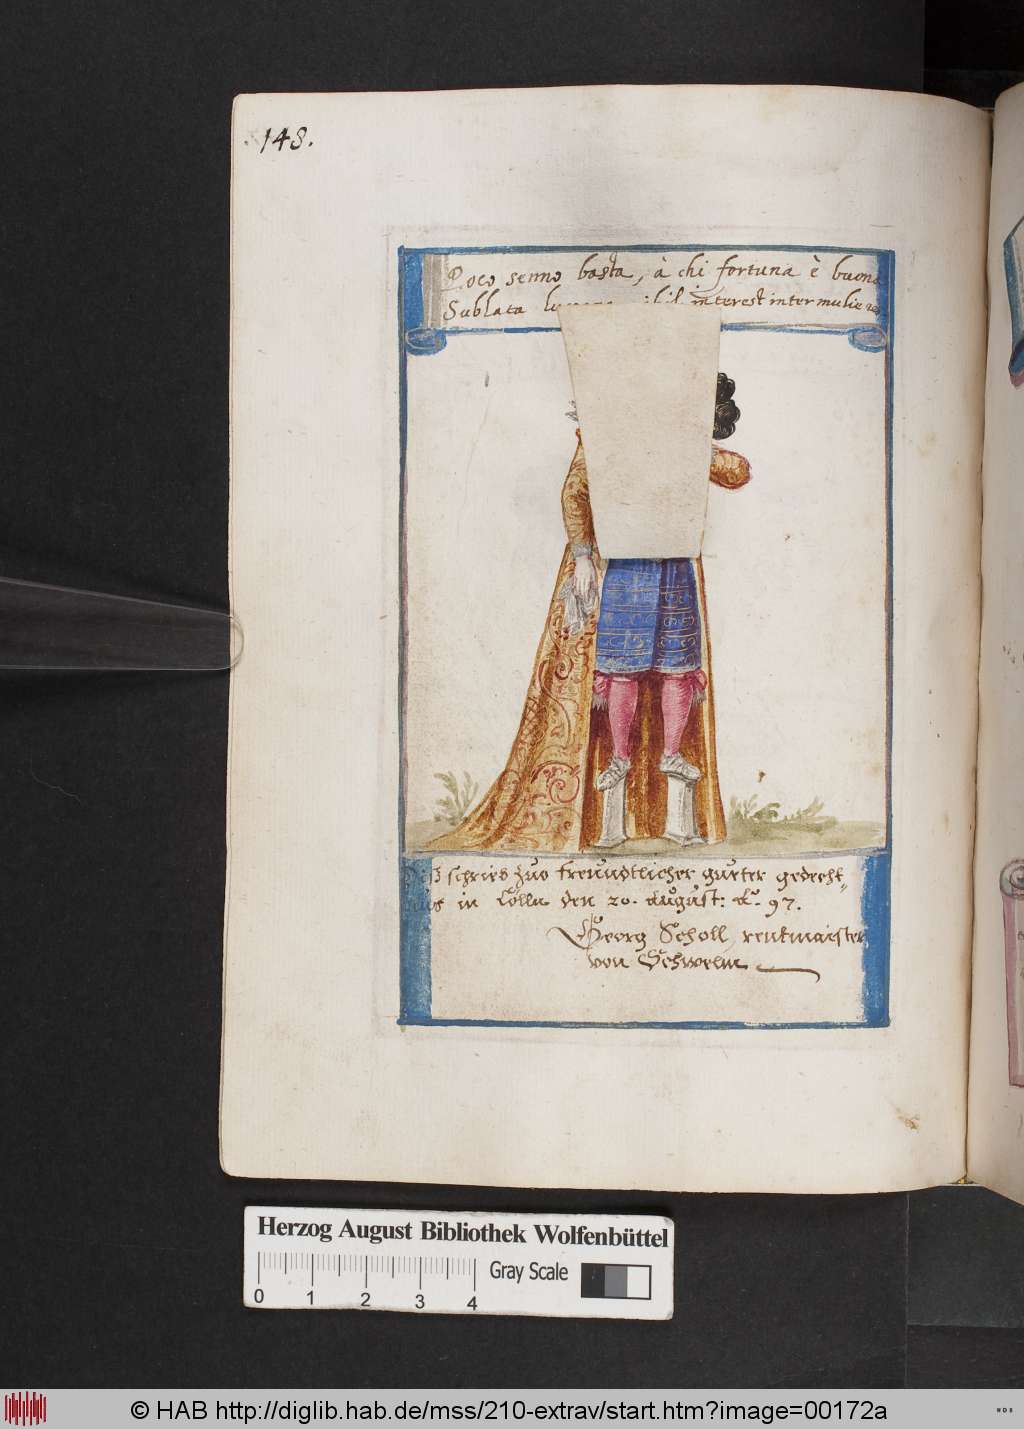 148.
Poco senno basta, à chi fortuna è buona
Sublata interest inter mulieres
Diß schrieb zuo freundtlicher gueter gedecht-
nus in Cölln den 20. August: Aº. 97.
Georg Scholl, rentmaister
von Schwelm
Herzog August Bibliothek Wolfenbüttel
Gray Scale
0 1 2 3 4
© HAB http://diglib.hab.de/mss/210-extrav/start.htm?image=00172a